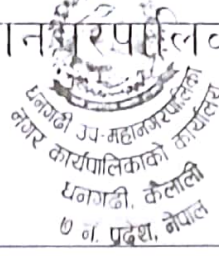 न
रपालि
धनगढी उप-महानगरपालिका
नगर कार्यपालिकाको कार्यालय
धनगढी, कैलाली
७ नं. प्रदेश, नेपाल